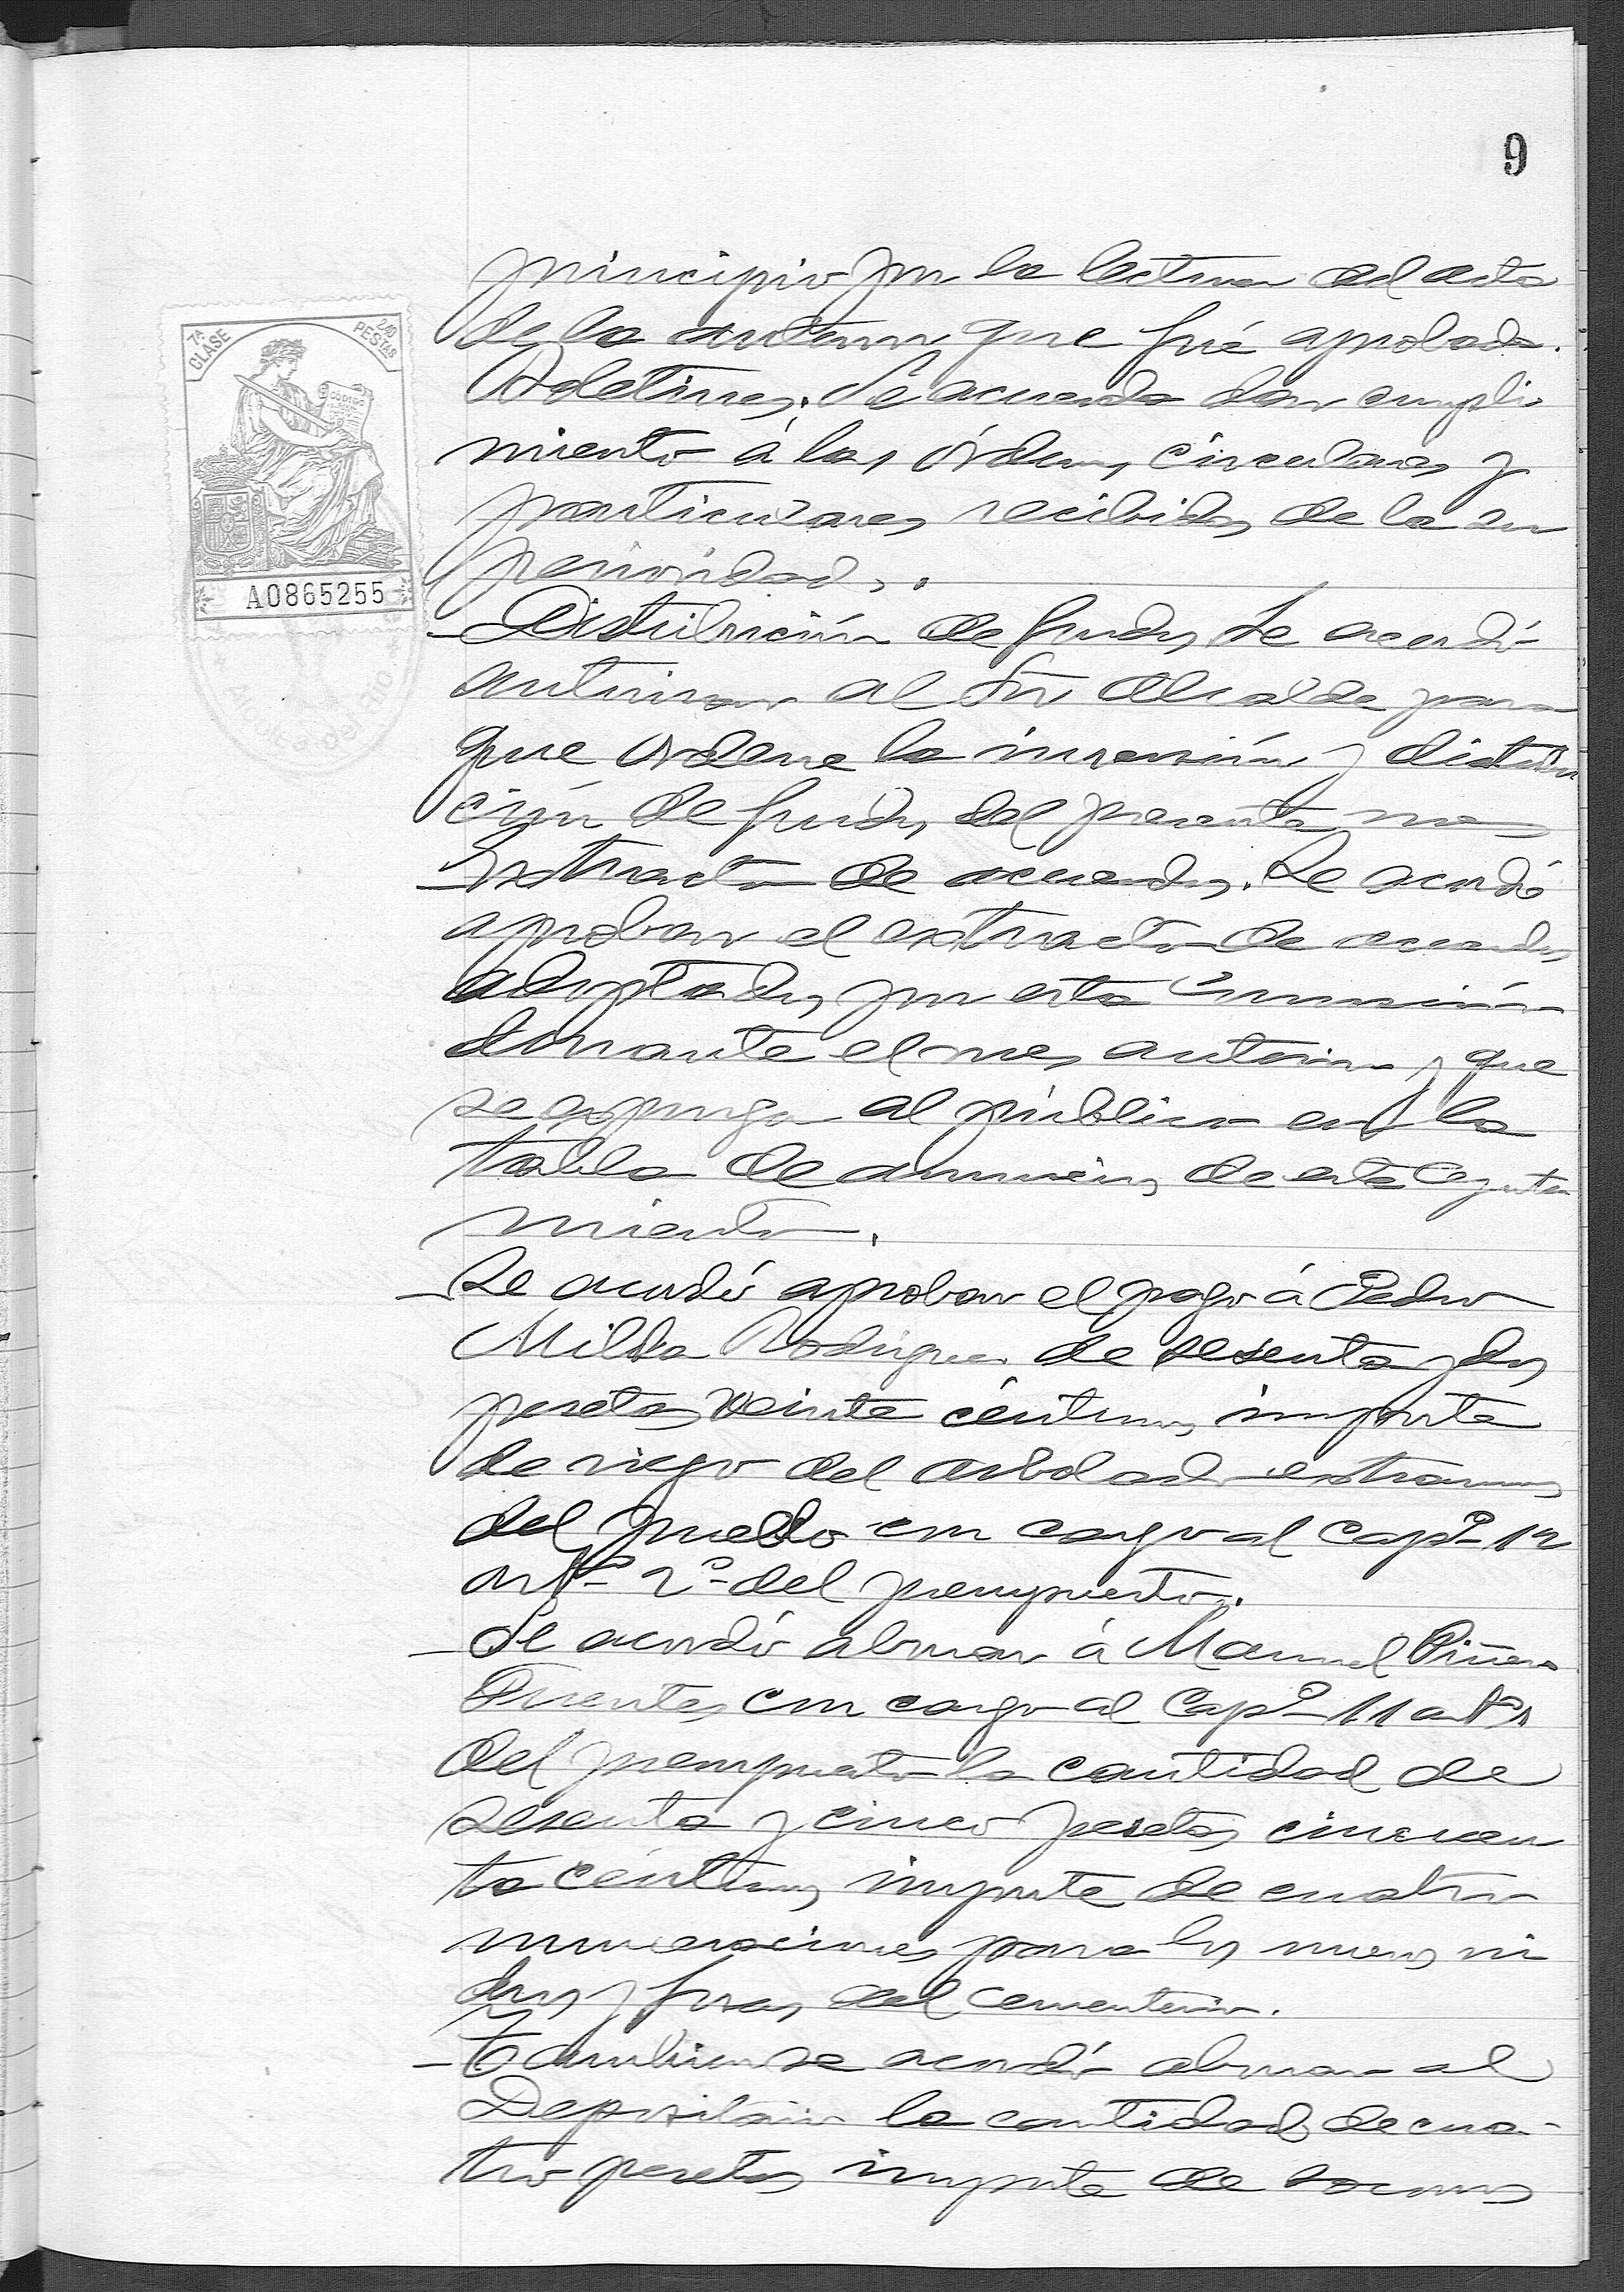 9
7ª CLASE
2,40 PESTAS
CODIGO
A0865255
Alcolea del Rio
principio por la lectura del acta
de la anterior que fué aprobada.
Boletines. Se acuerda dar cumpli
miento á las órdenes, circulares y
particulares recibidas de la su
perioridad.
Distribución de fondos Se acordó
autorizar al Sr. Alcalde para
que ordene la inversión y distribu
ción de fondos del presente mes
Extracto de acuerdos. Se acordó
aprobar el extracto de acuerdos
adoptados por esta Comisión
durante el mes anterior y que
se exponga al público en la
tabla de anuncios de este Ayunta
miento.
Se acordó aprobar el pago á Pedro
Milla Rodriguez de sesenta y dos
pesetas veinte céntimos importe
de riego del arbolado extramuros
del pueblo con cargo al Capº 12
artº 2º del presupuesto.
Se acordó abonar á Manuel Piñero
Fuentes con cargo al Capº 11 artº 1
del presupuesto la cantidad de
sesenta y cinco pesetas cincuen
ta céntimos importe de cuatro
numeraciones para los nuevos ni
chos y fosas del cementerio.
Tambien se acordó abonar al
Depositario la cantidad de cua-
tro pesetas importe de socorros